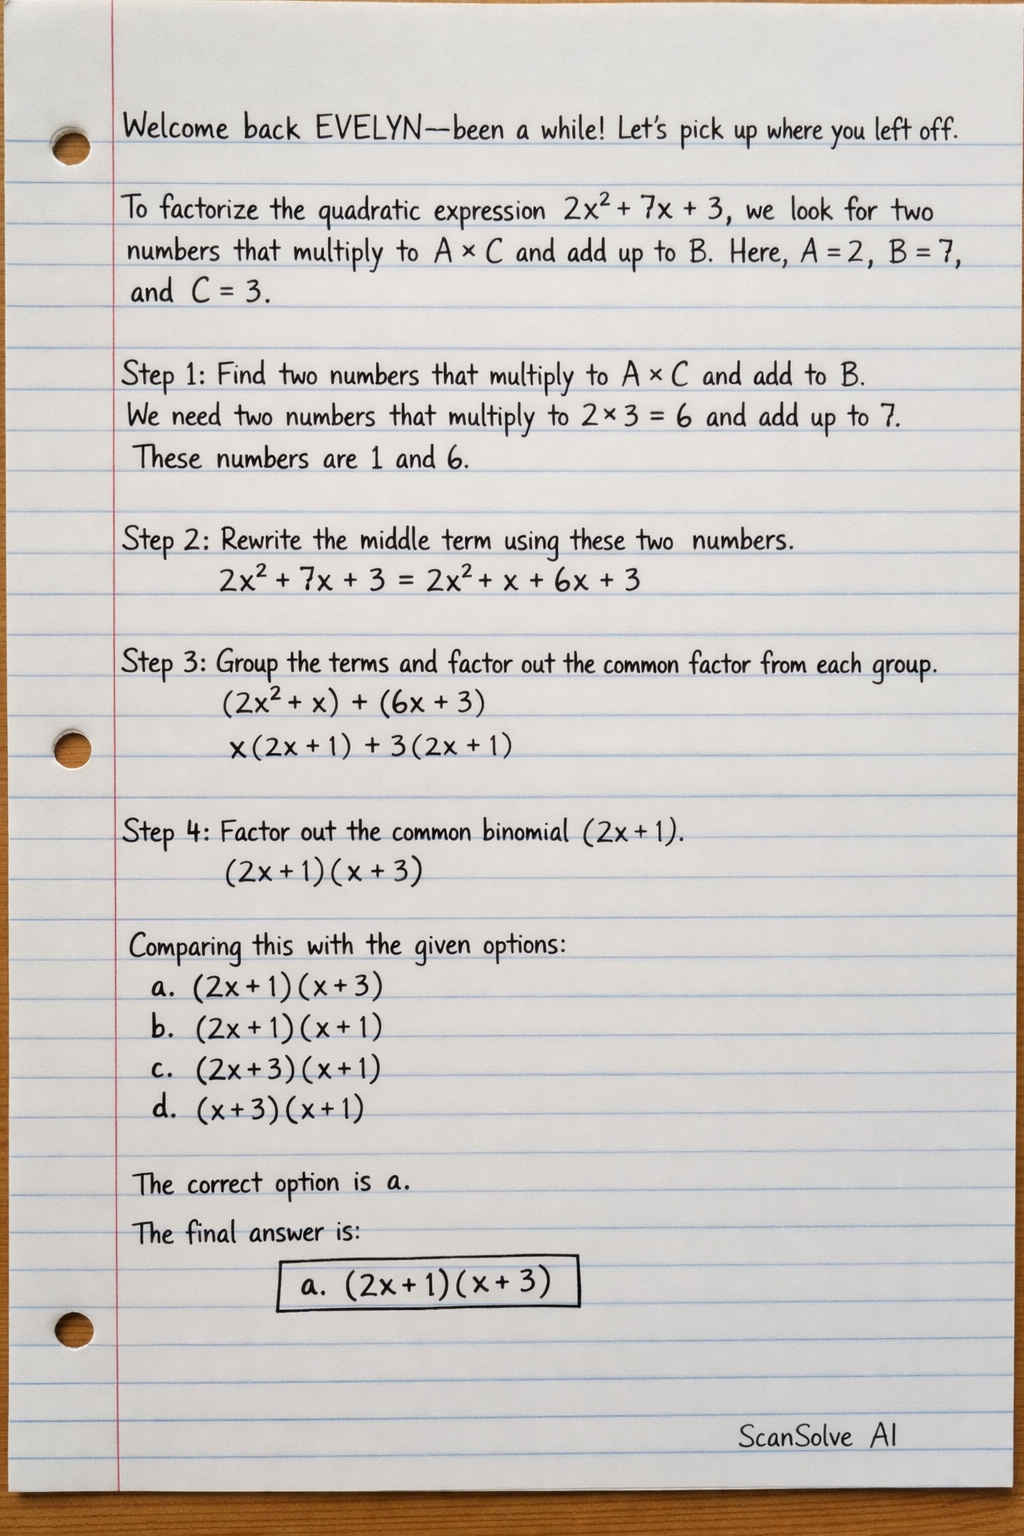 Welcome back EVELYN—been a while! Let's pick up where you left off.
To factorize the quadratic expression 2x² + 7x + 3, we look for two
numbers that multiply to A × C and add up to B. Here, A = 2, B = 7,
and C = 3.
Step 1: Find two numbers that multiply to A × C and add to B.
We need two numbers that multiply to 2 × 3 = 6 and add up to 7.
These numbers are 1 and 6.
Step 2: Rewrite the middle term using these two numbers.
2x² + 7x + 3 = 2x² + x + 6x + 3
Step 3: Group the terms and factor out the common factor from each group.
(2x² + x) + (6x + 3)
x(2x + 1) + 3(2x + 1)
Step 4: Factor out the common binomial (2x + 1).
(2x + 1)(x + 3)
Comparing this with the given options:
a. (2x + 1)(x + 3)
b. (2x + 1)(x + 1)
c. (2x + 3)(x + 1)
d. (x + 3)(x + 1)
The correct option is a.
The final answer is:
a. (2x + 1)(x + 3)
ScanSolve AI